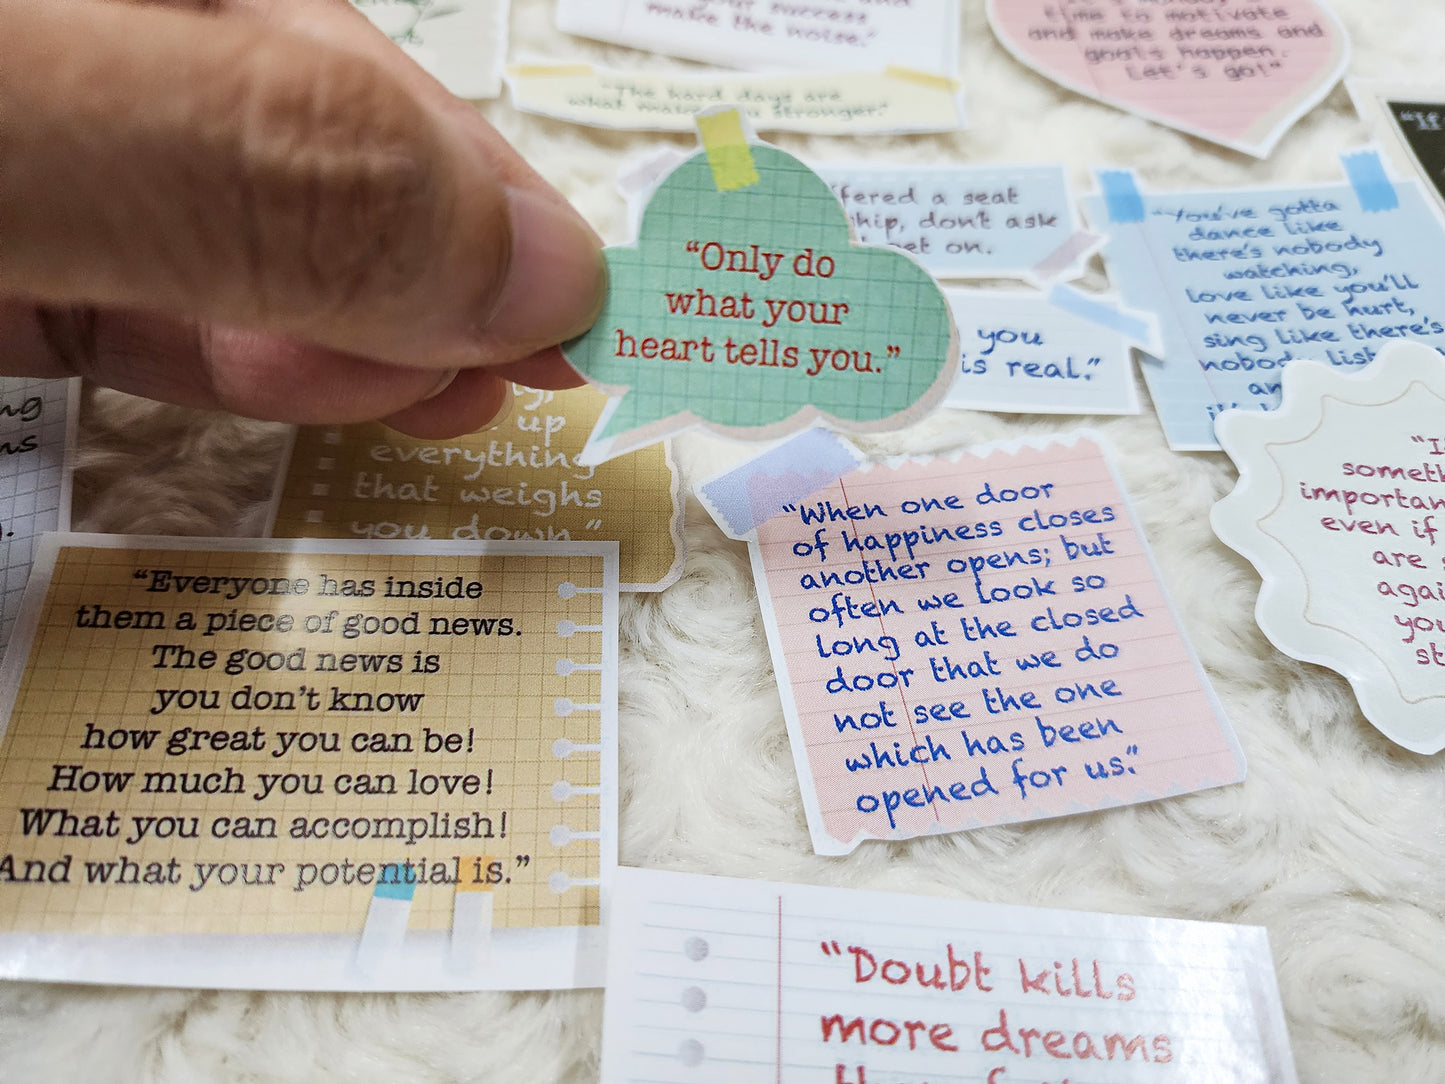 your success
make the noise."
time to motivate
and make dreams and
goals happen.
Let's go!"
"The hard days are
what make you stronger."
"If
fered a seat
hip, don't ask
get on.
"You've gotta
dance like
there's nobody
watching,
love like you'll
never be hurt,
sing like there's
nobody
"Only do
what your
heart tells you."
you
is real."
up
everything
that weighs
you down."
"When one door
of happiness closes
another opens; but
often we look so
long at the closed
door that we do
not see the one
which has been
opened for us."
"Everyone has inside
them a piece of good news.
The good news is
you don't know
how great you can be!
How much you can love!
What you can accomplish!
And what your potential is."
someth
importan
even if
are
agai
you
st
"Doubt kills
more dreams